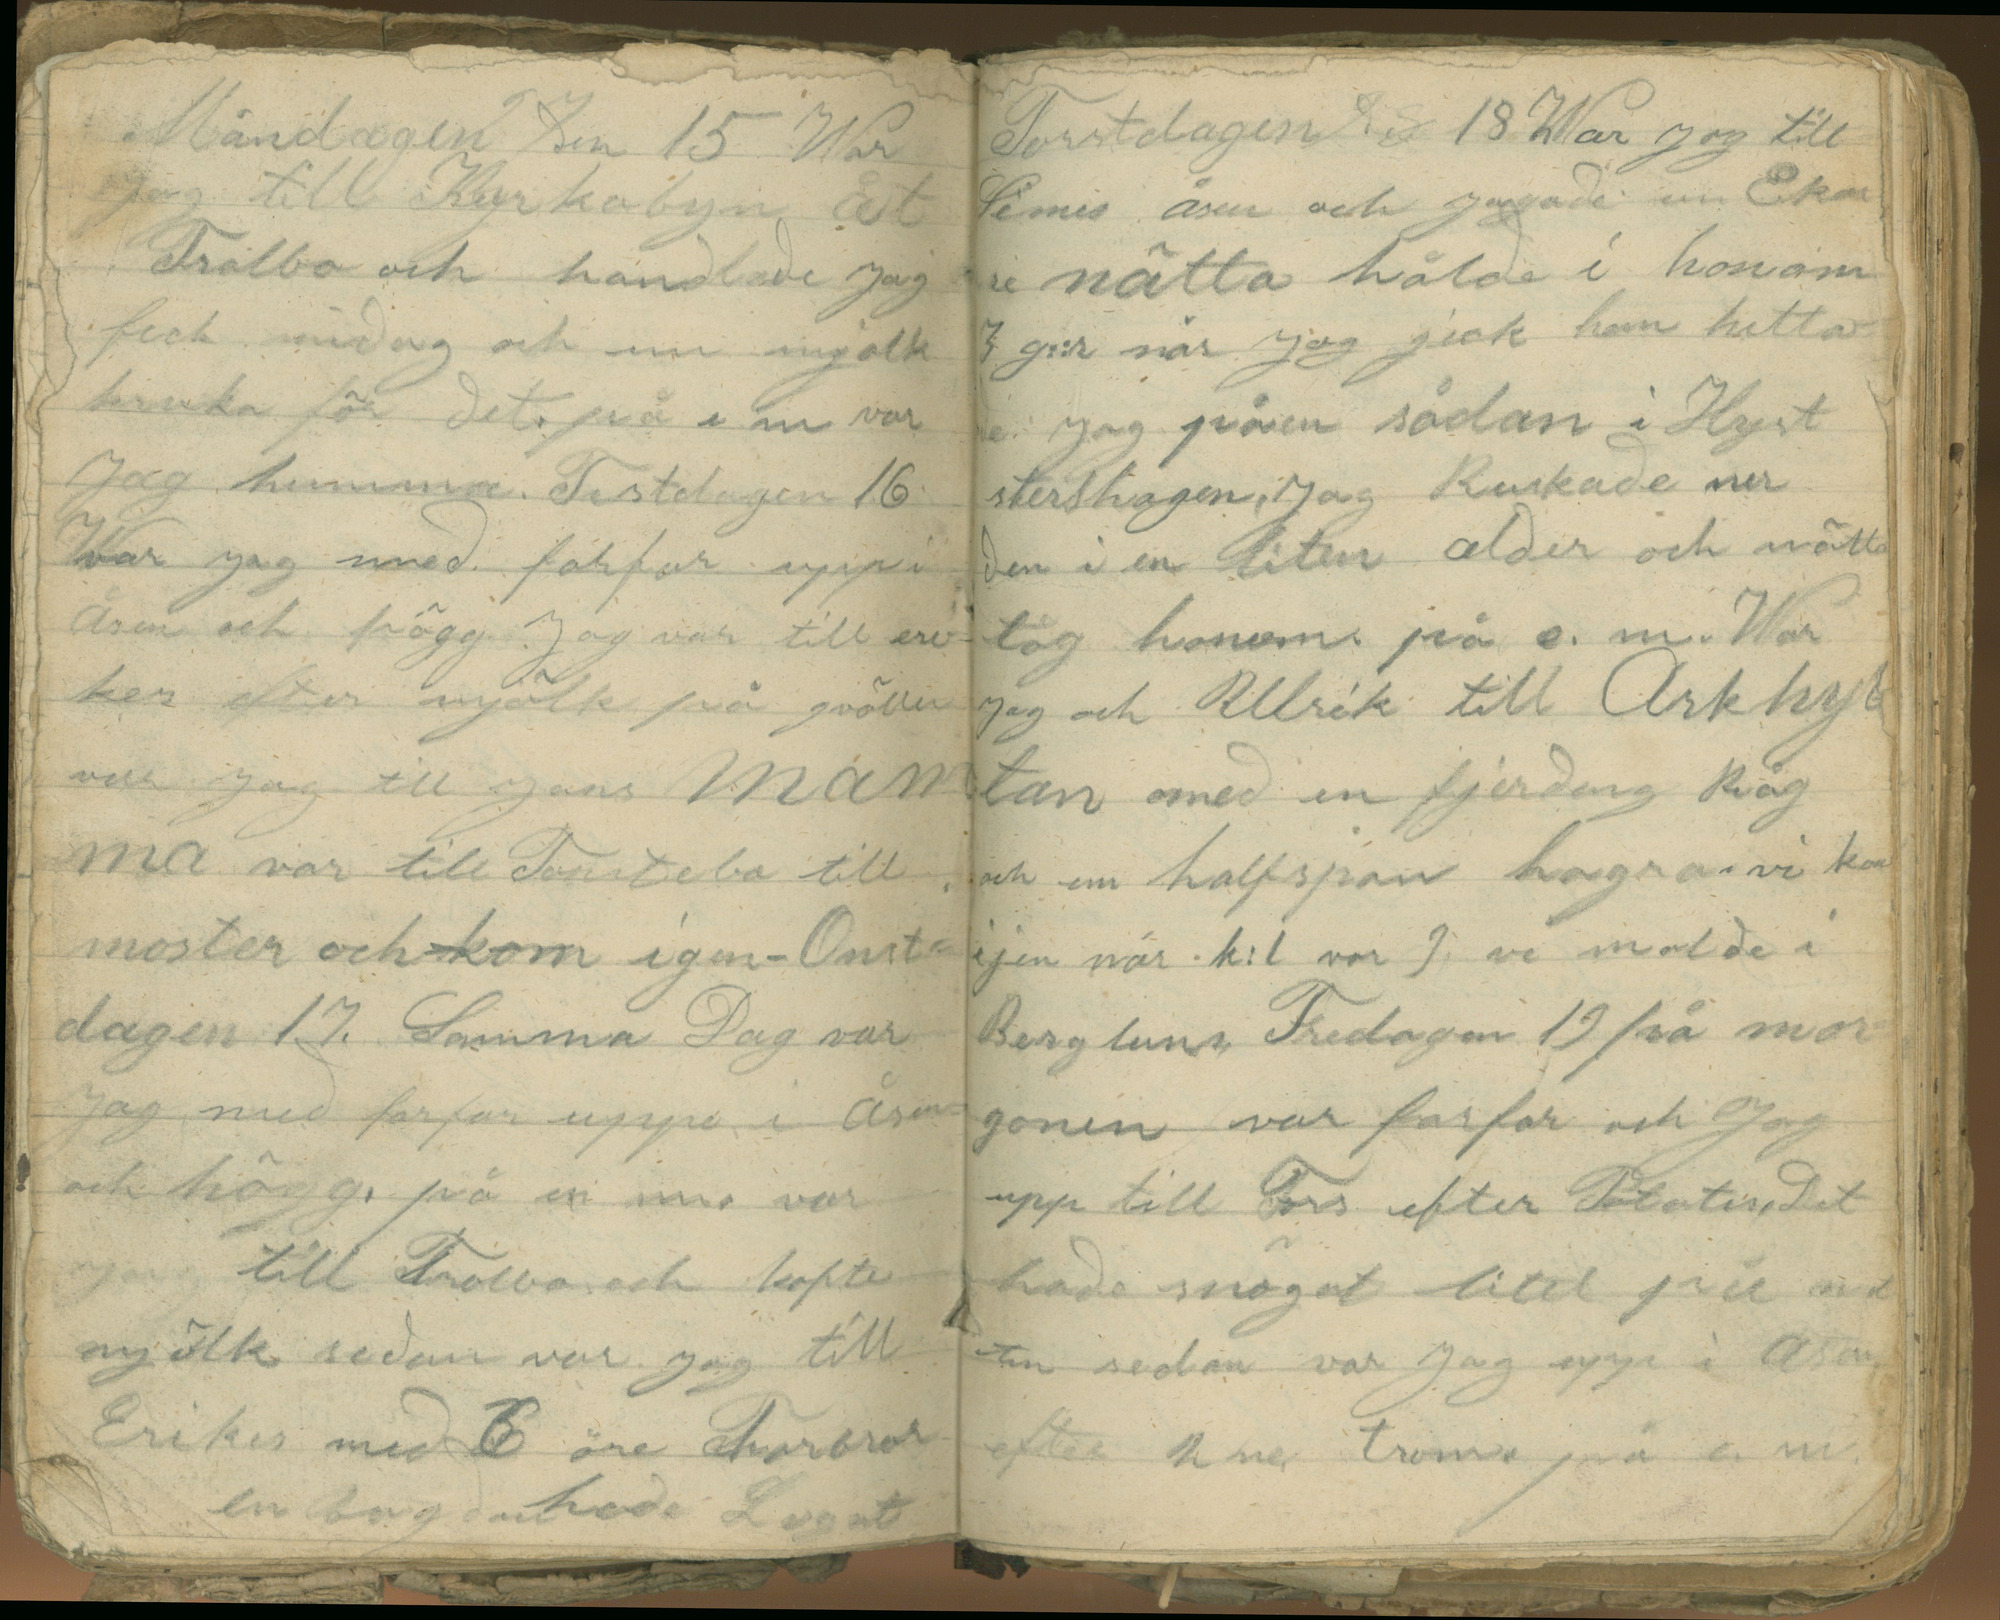 Måndagen Den 15 War
jag till Kyrkobyn Åt
Trålbo och handlade jag
feck midag och en mjölk
kruka för det. på e m var
Jag hemma. Tistdagen 16
War jag med farfar upp i
Åsen och högg Jag var till eri-
kes efter mjölk på qvällen
var jag till jans Mam
ma var till Torstebo till
moster och kom igen - Onst=
dagen 17. Samma Dag var
Jag med farfar uppe i Åsen
och högg. på en m. var
jag till Trålbo och kopte
mjölk sedan var jag till
Erikes med 6 öre Farbror
en bog hade
Torstdagen 18 War jag till
Simis åsen och jagade en Ekor
re nätta hålde i honom
3 g:r när jag gick hem hitta
de jag påen sådan i Hyst
stershagen, jag Ruskade ner
den i en liten alder och nätta
tåg honom. på e. m. War
jag och Ullrik till Arkhyt
tan med en fjerdeng Råg
och en halfspan hagra. vi kom
ijen när k:l var 9. vi malde i
Bergluns Fredagen 19 på mor
gonen var farfar och Jag
upp till Fors efter Potatis, Det
hade snögat litet på n
ten sedan var jag upp i Åsen
efter trom. på e. m.